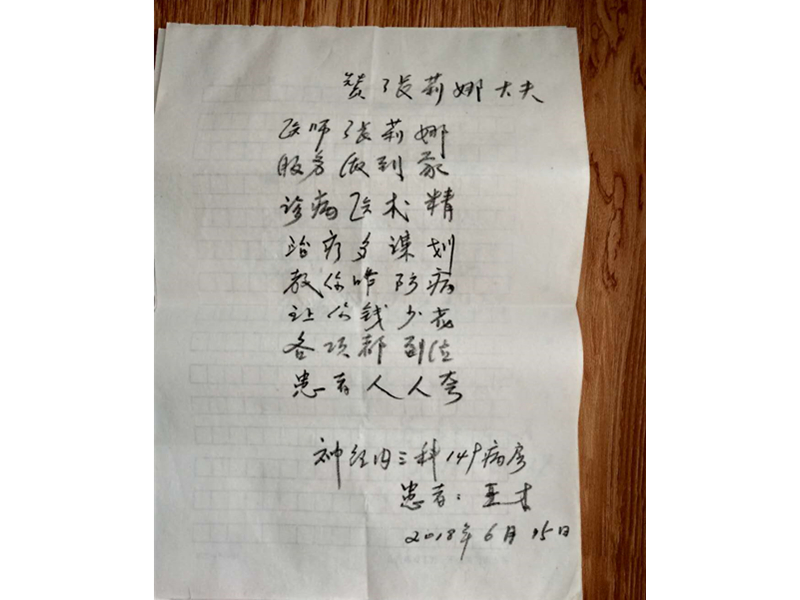 赞张莉娜大夫
医师张莉娜
服务做到家
诊病医术精
治疗多谋划
教你咋防病
让你钱少花
各项都到位
患者人人夸
神经内三科149病房
患者：王
2018年6月15日